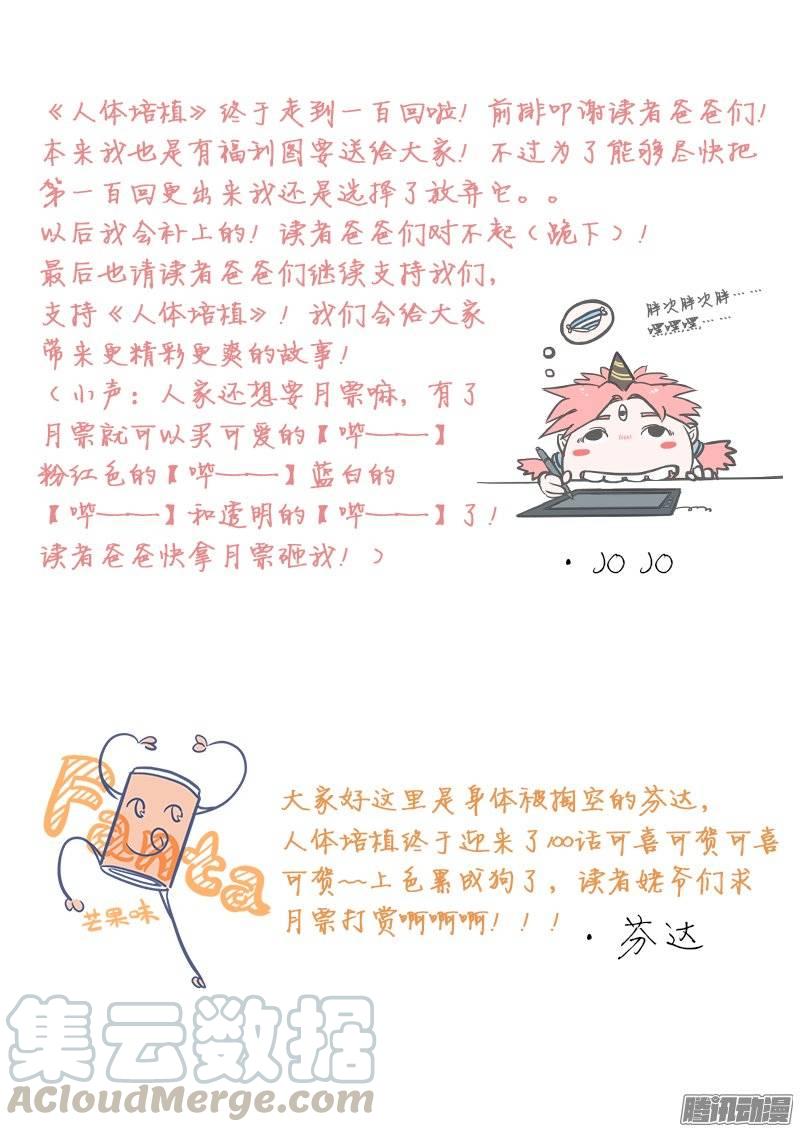 《人体培植》终于走到一百回啦！前排叩谢读者爸爸们！
本来我也是有福利图要送给大家！不过为了能够尽快把
第一百回更出来我还是选择了放弃它。。
以后我会补上的！读者爸爸们对不起（跪下）！
最后也请读者爸爸们继续支持我们，
支持《人体培植》！我们会给大家
带来更精彩更爽的故事！
（小声：人家还想要月票嘛，有了
月票就可以买可爱的【哔——】
粉红色的【哔——】蓝白的
【哔——】和透明的【哔——】了！
读者爸爸快拿月票砸我！）
胖次胖次胖……
嘿嘿嘿……
·JOJO
Fanta
芒果味
大家好这里是身体被掏空的芬达，
人体培植终于迎来了100话可喜可贺可喜
可贺~~上色累成狗了，读者姥爷们求
月票打赏啊啊啊！！！
·芬达
集云数据
ACloudMerge.com
腾讯动漫